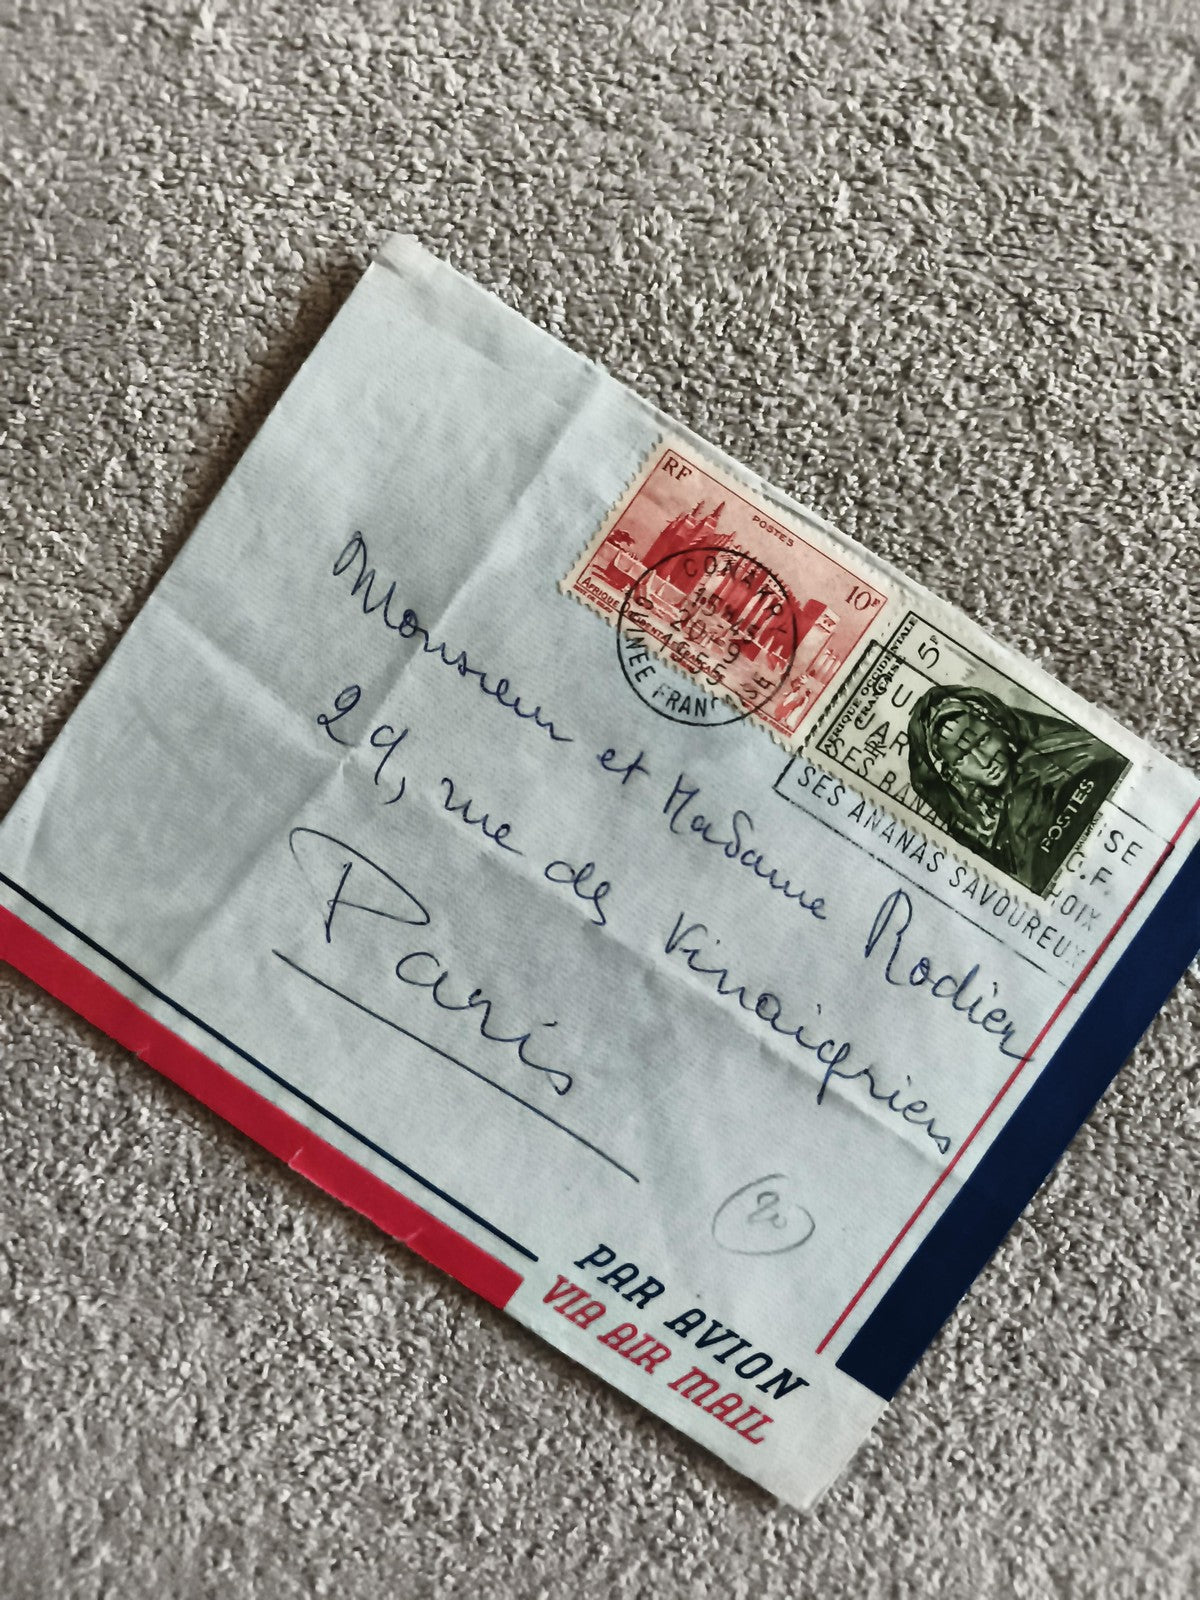 RF
POSTES
10F
AFRIQUE OCCIDENTALE FRANÇAISE
CONAKRY
15H45
20-9
1955
GUINEE FRANÇSE
AFRIQUE OCCIDENTALE
FRANÇAISE
RF
5F
POSTES
SES BANAN
SES ANANAS SAVOUREUX
Monsieur et Madame Rodier
29, rue des Vinaigriers
Paris
(20)
PAR AVION
VIA AIR MAIL